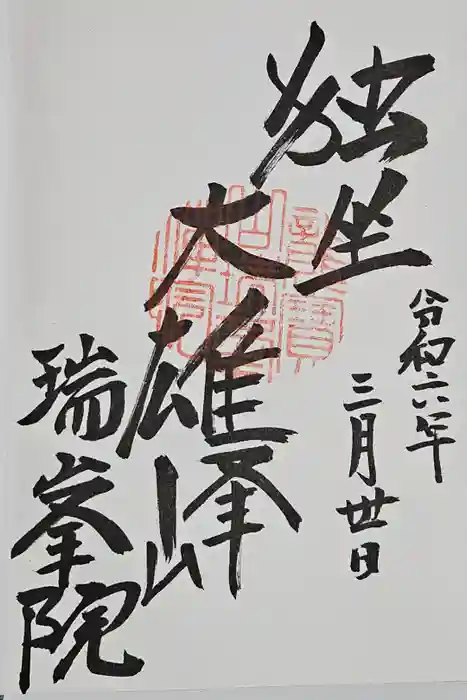 令和六年
三月丗日
独坐
大雄峰
瑞峯院